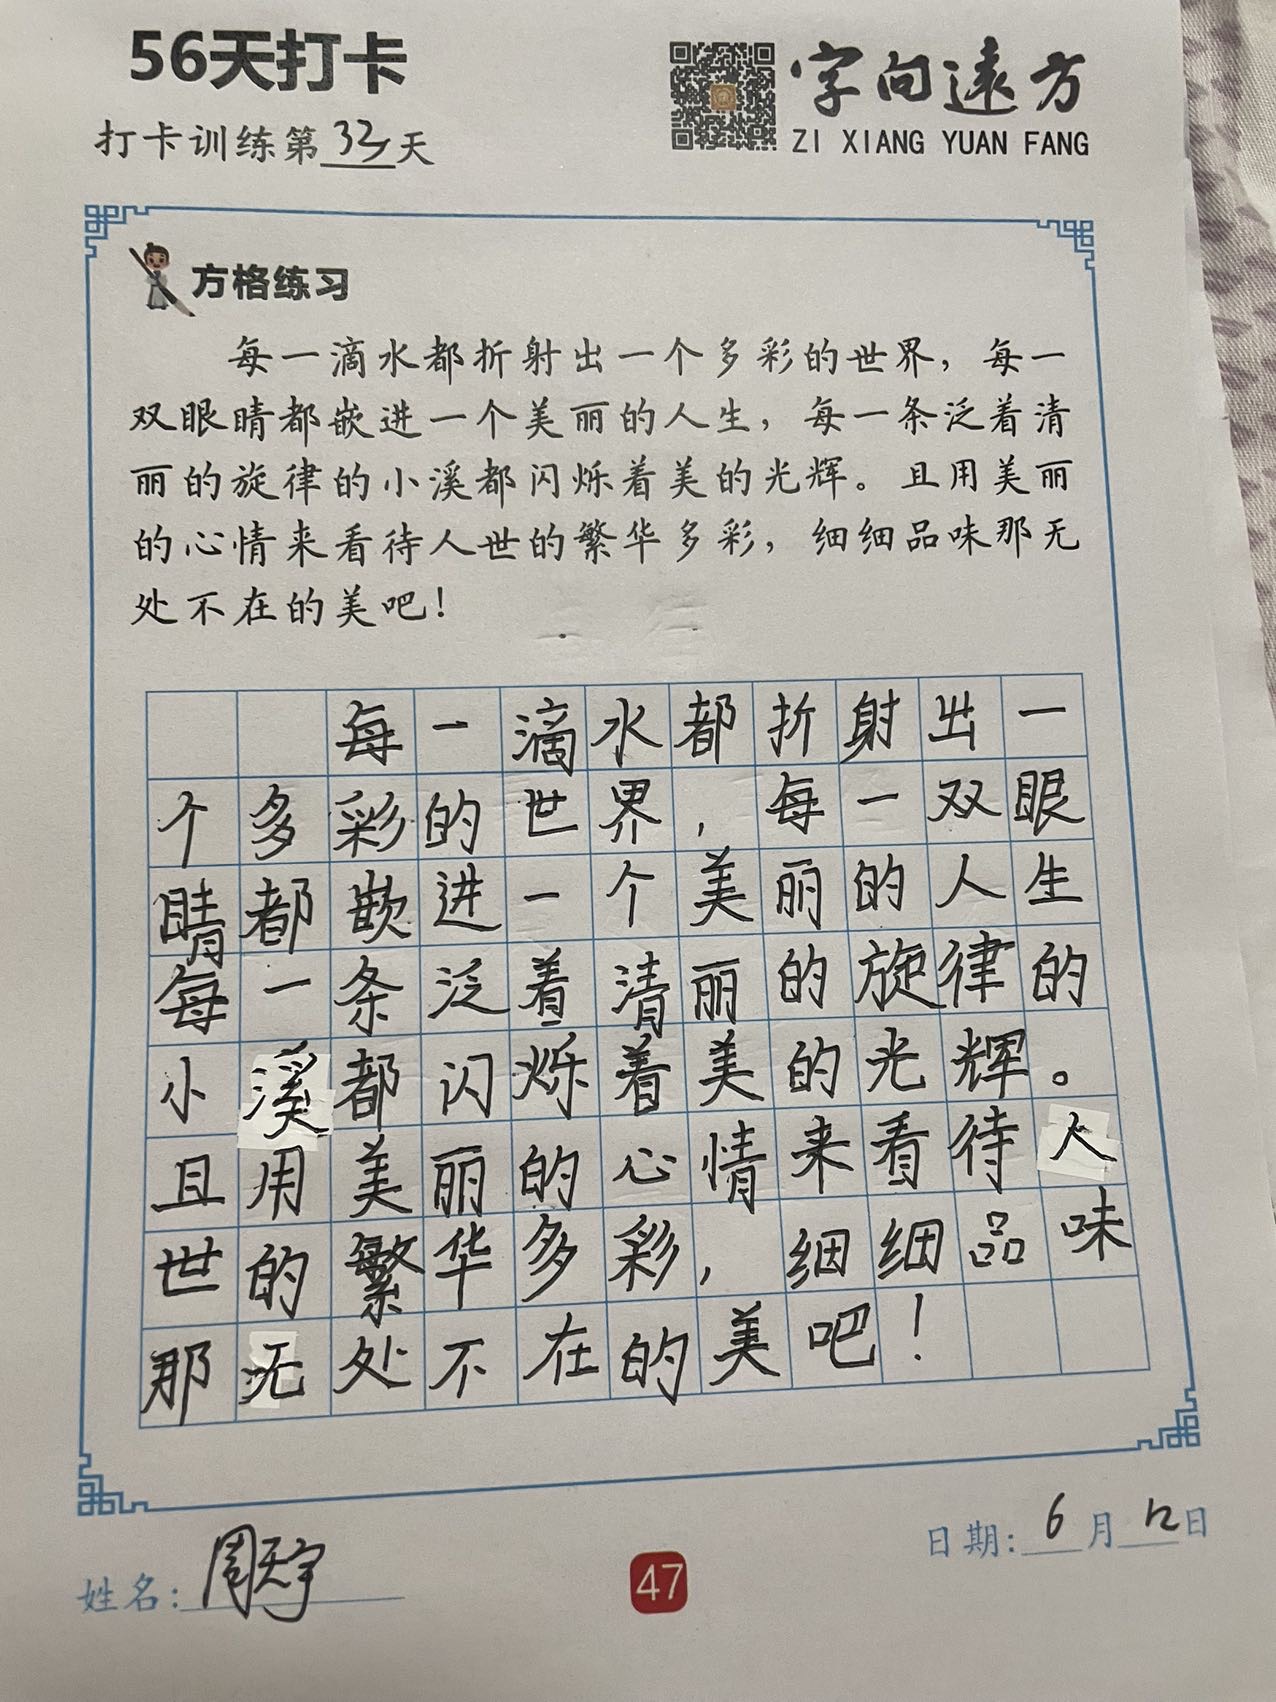 56天打卡
字向遠方
ZI XIANG YUAN FANG
打卡训练第33天
方格练习
每一滴水都折射出一个多彩的世界，每一
双眼睛都嵌进一个美丽的人生，每一条泛着清
丽的旋律的小溪都闪烁着美的光辉。且用美丽
的心情来看待人世的繁华多彩，细细品味那无
处不在的美吧！
每一滴水都折射出一
个多彩的世界，每一双眼
睛都嵌进一个美丽的人生
每一条泛着清丽的旋律的
小溪都闪烁着美的光辉。
且用美丽的心情来看待人
世的繁华多彩，细细品味
那无处不在的美吧！
姓名：周天宇
47
日期：6月12日